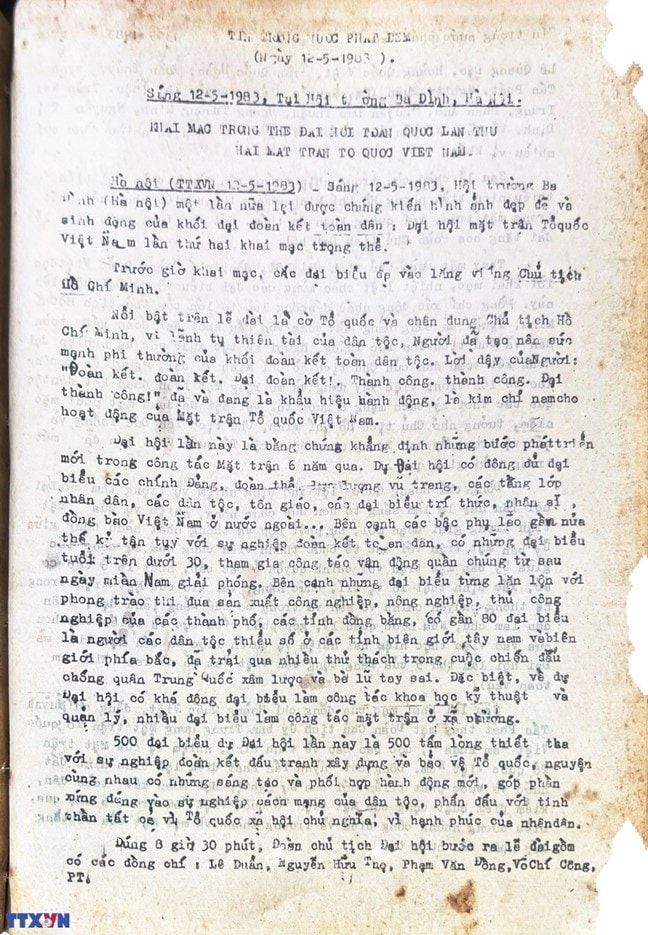 TIN TRONG NƯỚC PHÁT ĐÊM
(Ngày 12-5-1983 ).
Sáng 12-5-1983, Tại Hội trường Ba Đình, Hà Nội.
KHAI MẠC TRỌNG THỂ ĐẠI HỘI TOÀN QUỐC LẦN THỨ
HAI MẶT TRẬN TỔ QUỐC VIỆT NAM.
Hà nội (TTXVN 12-5-1983) - Sáng 12-5-1983, Hội trường Ba
Đình (Hà nội) một lần nữa lại được chứng kiến hình ảnh đẹp đẽ và
sinh động của khối đại đoàn kết toàn dân : Đại hội mặt trận Tổquốc
Việt Nam lần thứ hai khai mạc trọng thể.
Trước giờ khai mạc, các đại biểu đã vào lăng viếng Chủ tịch
Hồ Chí Minh.
Nổi bật trên lễ đài là cờ Tổ quốc và chân dung Chủ tịch Hồ
Chí Minh, vị lãnh tụ thiên tài của dân tộc, Người đã tạo nên sức
mạnh phi thường của khối đoàn kết toàn dân tộc. Lời dạy củaNgười:
"Đoàn kết. đoàn kết. Đại đoàn kết!. Thành công. thành công. Đại
thành công!" đã và đang là khẩu hiệu hành động, là kim chỉ namcho
hoạt động của Mặt trận Tổ quốc Việt Nam.
Đại hội lần này là bằng chứng khẳng định những bước pháttriển
mới trong công tác Mặt trận 6 năm qua. Dự Đại hội có đông đủ đại
biểu các chính Đảng, đoàn thể, lực lượng vũ trang, các tầng lớp
nhân dân, các dân tộc, tôn giáo, các đại biểu trí thức, nhân sĩ ,
đồng bào Việt Nam ở nước ngoài... Bên cạnh các bậc phụ lão gần nửa
thế kỉ tận tụy với sự nghiệp đoàn kết toàn dân, có những đại biểu
tuổi trên dưới 30, tham gia công tác vận động quần chúng từ sau
ngày miền Nam giải phóng. Bên cạnh những đại biểu từng lăn lộn với
phong trào thi đua sản xuất công nghiệp, nông nghiệp, thủ công
nghiệp của các thành phố, các tỉnh đồng bằng, có gần 80 đại biểu
là người các dân tộc thiểu số ở các tỉnh biên giới tây nam vàbiên
giới phía bắc, đã trải qua nhiều thử thách trong cuộc chiến đấu
chống quân Trung Quốc xâm lược và bè lũ tay sai. Đặc biệt, về dự
Đại hội, có khá đông đại biểu làm công tác khoa học kỹ thuật và
quản lý, nhiều đại biểu làm công tác mặt trận ở xã phường.
500 đại biểu dự Đại hội lần này là 500 tấm lòng thiết tha
với sự nghiệp đoàn kết đấu tranh xây dựng và bảo vệ Tổ quốc, nguyện
cùng nhau có những sáng tạo và phối hợp hành động mới, góp phần
xứng đáng vào sự nghiệp cách mạng của dân tộc, phấn đấu với tinh
thần tất cả vì Tổ quốc xã hội chủ nghĩa, vì hạnh phúc của nhândân.
Đúng 8 giờ 30 phút, Đoàn chủ tịch Đại hội bước ra lễ đàigồm
có các đồng chí : Lê Duẩn, Nguyễn Hữu Thọ, Phạm Văn Đồng,Võ Chí Công,
PT.
TTXVN